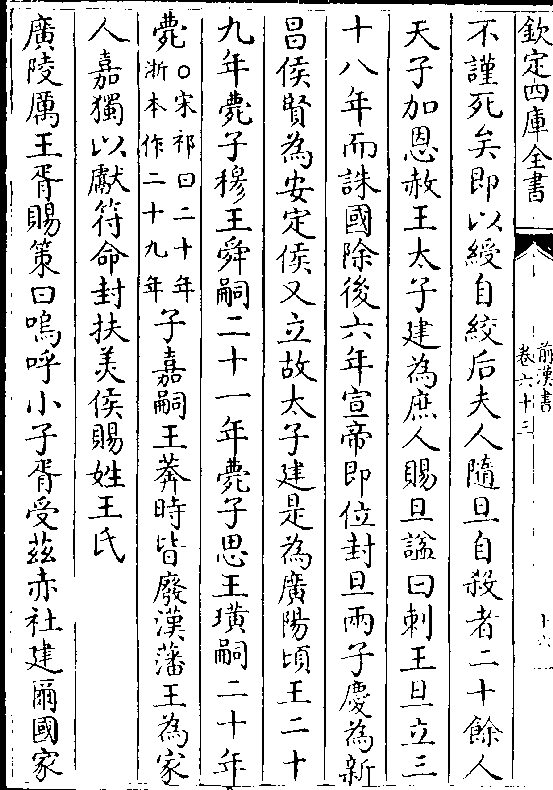 欽定四庫全書
前漢書
卷六十三
十六
不謹死矣即以綬自絞后夫人隨旦自殺者二十餘人
天子加恩赦王太子建為庶人賜旦諡曰刺王旦立三
十八年而誅國除後六年宣帝即位封旦兩子慶為新
昌侯賢為安定侯又立故太子建是為廣陽頃王二十
九年薨子穆王舜嗣二十一年薨子思王璜嗣二十年
薨○宋祁曰二十年浙本作二十九年子嘉嗣王莽時皆廢漢藩王為家
人嘉獨以獻符命封扶美侯賜姓王氏
廣陵厲王胥賜策曰嗚呼小子胥受茲赤社建爾國家